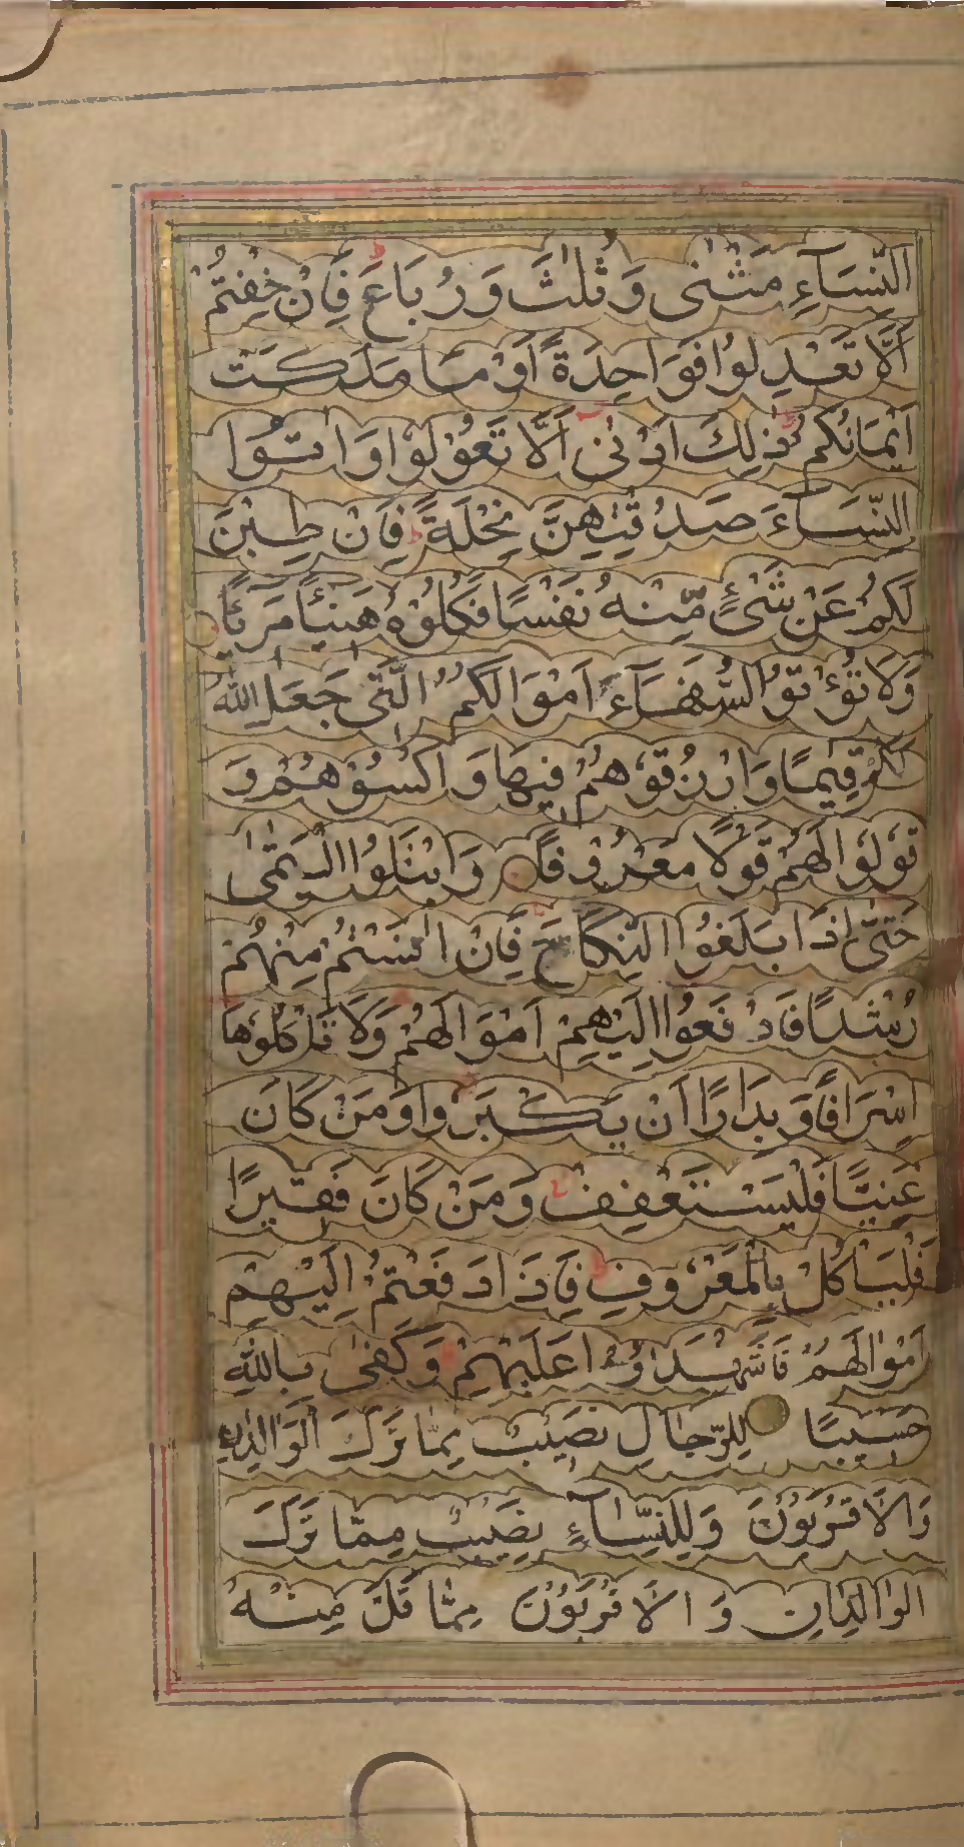 النِّسَآءِ مَثْنٰى وَثُلٰثَ وَرُبَاعَ فَاِنْ خِفْتُمْ
اَلَّا تَعْدِلُوْا فَوَاحِدَةً اَوْ مَا مَلَكَتْ
اَيْمَانُكُمْ ذٰلِكَ اَدْنٰى اَلَّا تَعُوْلُوْا وَاٰتُوا
النِّسَآءَ صَدُقٰتِهِنَّ نِحْلَةً فَاِنْ طِبْنَ
لَكُمْ عَنْ شَىْءٍ مِّنْهُ نَفْسًا فَكُلُوْهُ هَنِيْئًا مَرِيْئًا
وَلَا تُؤْتُوا السُّفَهَآءَ اَمْوَالَكُمُ الَّتِىْ جَعَلَ اللّٰهُ
لَكُمْ قِيٰمًا وَارْزُقُوْهُمْ فِيْهَا وَاكْسُوْهُمْ وَ
قُوْلُوْا لَهُمْ قَوْلًا مَعْرُوْفًا وَابْتَلُوا الْيَتٰمٰى
حَتّٰى اِذَا بَلَغُوا النِّكَاحَ فَاِنْ اٰنَسْتُمْ مِنْهُمْ
رُشْدًا فَادْفَعُوْا اِلَيْهِمْ اَمْوَالَهُمْ وَلَا تَاْكُلُوْهَا
اِسْرَافًا وَبِدَارًا اَنْ يَكْبَرُوْا وَمَنْ كَانَ
غَنِيًّا فَلْيَسْتَعْفِفْ وَمَنْ كَانَ فَقِيْرًا
فَلْيَاْكُلْ بِالْمَعْرُوْفِ فَاِذَا دَفَعْتُمْ اِلَيْهِمْ
اَمْوَالَهُمْ فَاَشْهِدُوْا عَلَيْهِمْ وَكَفٰى بِاللّٰهِ
حَسِيْبًا لِلرِّجَالِ نَصِيْبٌ مِمَّا تَرَكَ الْوَالِدٰنِ
وَالْاَقْرَبُوْنَ وَلِلنِّسَآءِ نَصِيْبٌ مِمَّا تَرَكَ
الْوَالِدَانِ وَالْاَقْرَبُوْنَ مِمَّا قَلَّ مِنْهُ